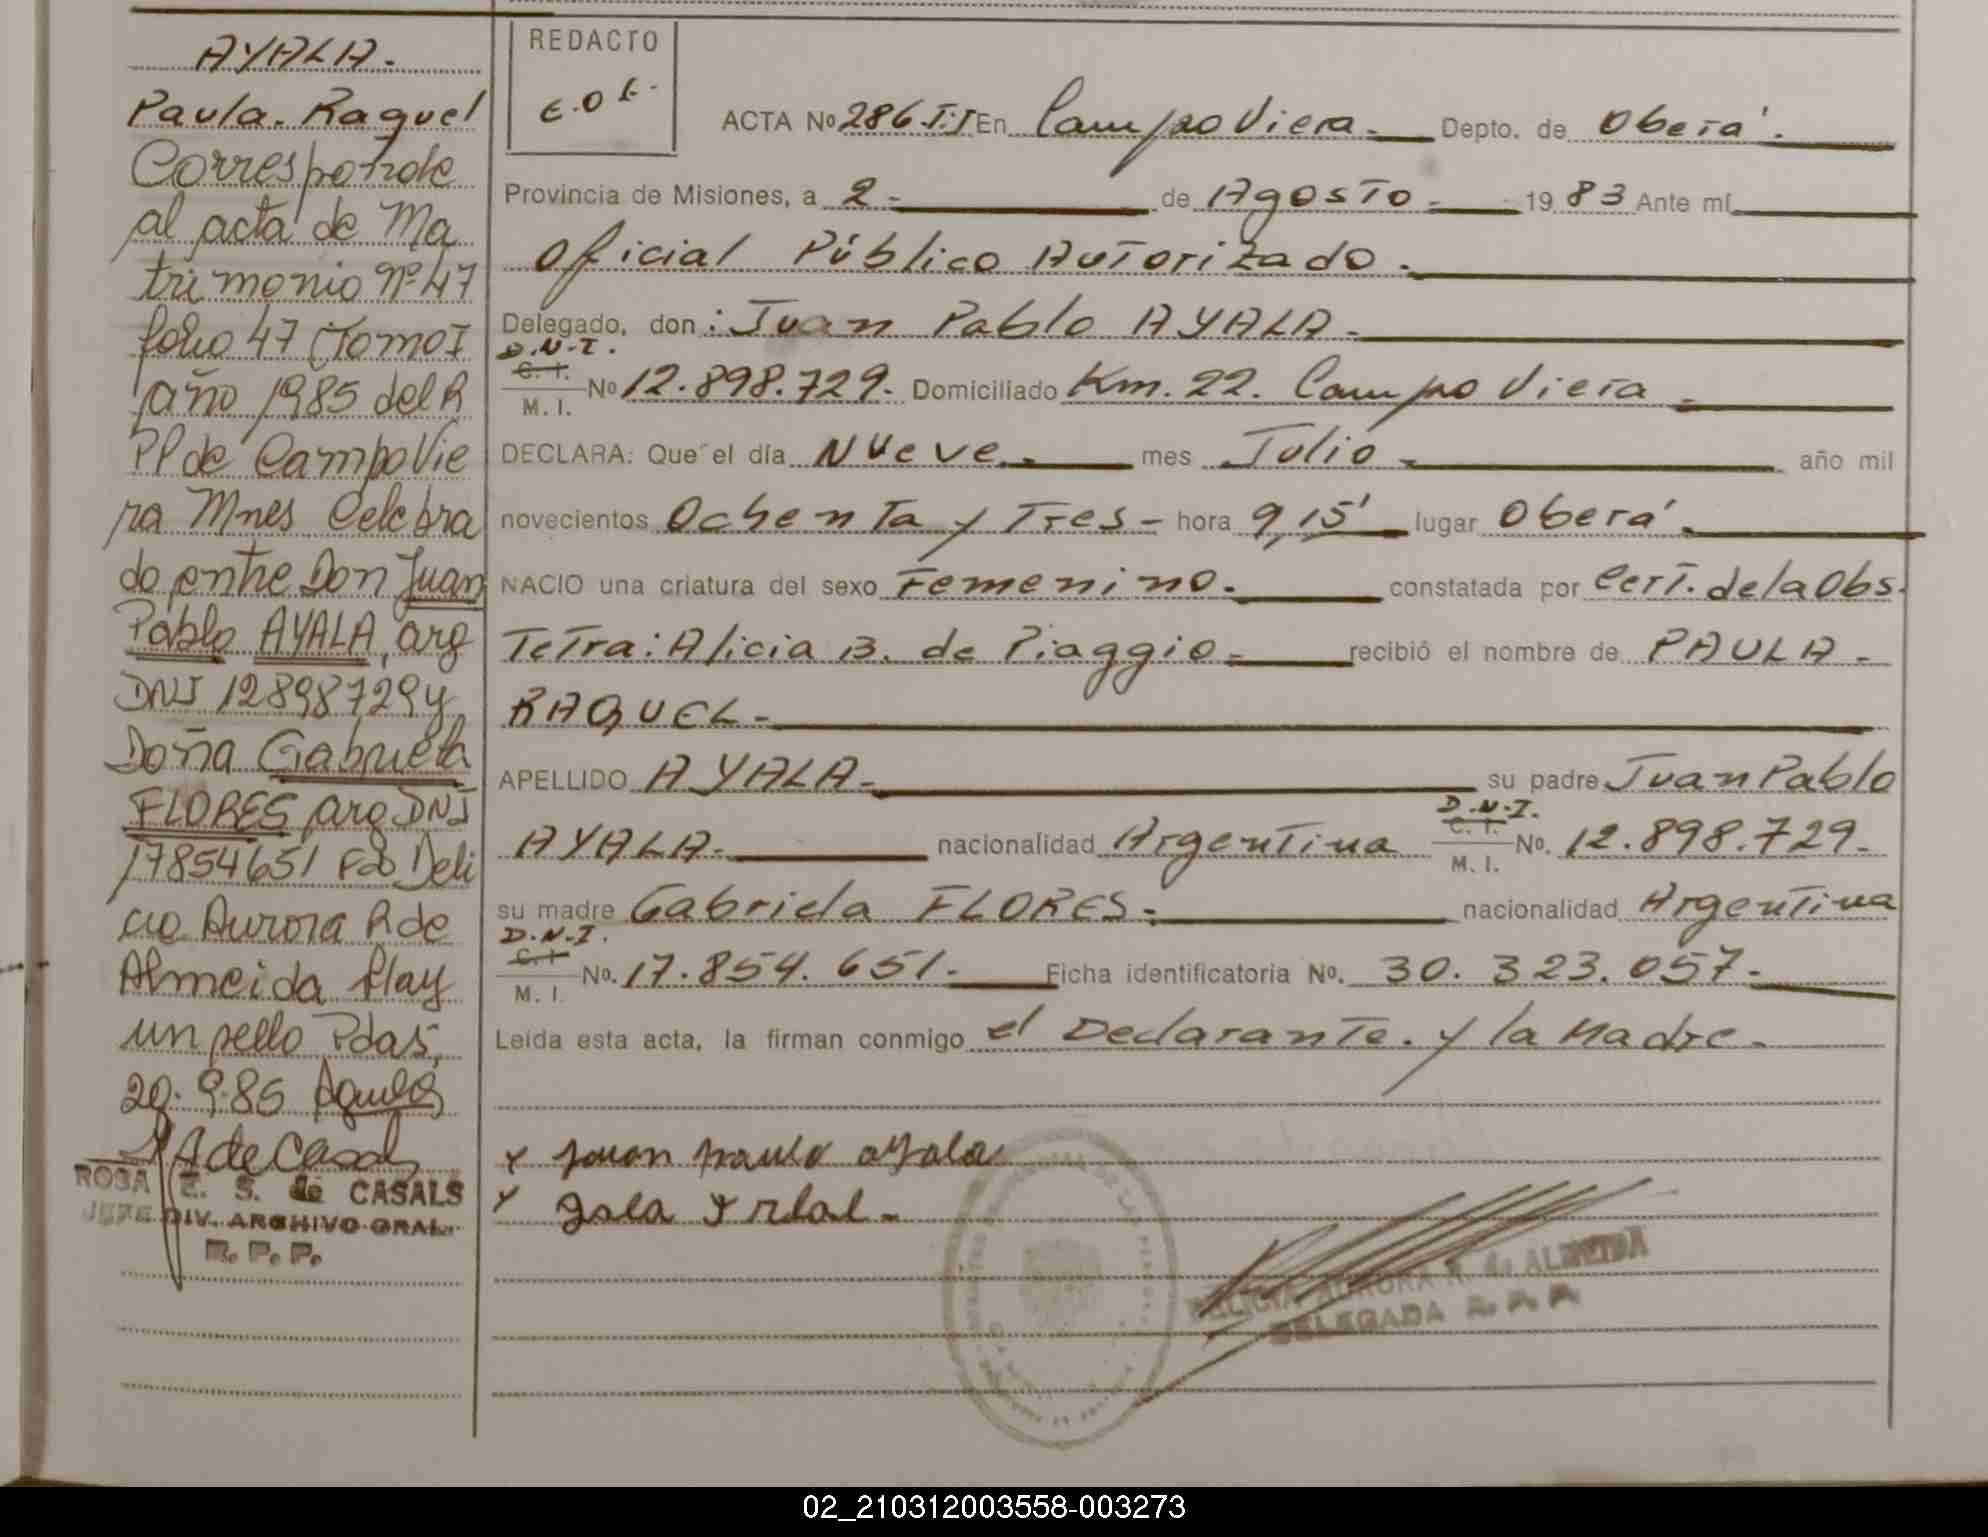 AYALA.
Paula. Raquel
Corresponde
al acta de Ma
trimonio Nº 47
folio 47 Tomo I
año 1985 del R
PP de Campo Vie
ra Mnes Celebra
do entre Don Juan
Pablo AYALA, arg
DNI 12898729 y
Doña Gabriela
FLORES arg DNI
17854651 Fdo Deli
cia Aurora R de
Almeida Hay
un sello Pdas,
20.9.85
A de Casals
ROSA E. S. de CASALS
JEFE DIV. ARCHIVO GRAL.
R. P. P.
REDACTO
ACTA Nº 286 T:I En Campo Viera.- Depto. de Oberá.
Provincia de Misiones, a 2.- de Agosto.- 1983 Ante mí
Oficial Público Autorizado.
Delegado, don: Juan Pablo AYALA.
D.N.I.
C. I.
M. I.
Nº 12.898.729. Domiciliado Km. 22. Campo Viera
DECLARA: Que el día Nueve.- mes Julio.- año mil
novecientos Ochenta y Tres- hora 9,15' lugar Oberá.
NACIO una criatura del sexo Femenino. constatada por Cert. de la Obs.
Tetra: Alicia B. de Piaggio.- recibió el nombre de PAULA.-
RAQUEL.-
APELLIDO AYALA.- su padre Juan Pablo
AYALA.- nacionalidad Argentina
D.N.I.
C. I.
M. I.
Nº. 12.898.729.
su madre Gabriela FLORES.- nacionalidad Argentina
D.N.I.
C. I
M. I.
Nº. 17.854.651.- Ficha identificatoria Nº. 30.323.057.-
Leída esta acta, la firman conmigo el Declarante. y la Madre.-
x juan paulo ayala
x
DELICIA AURORA R. de ALMEIDA
DELEGADA R. P. P.
02_210312003558-003273